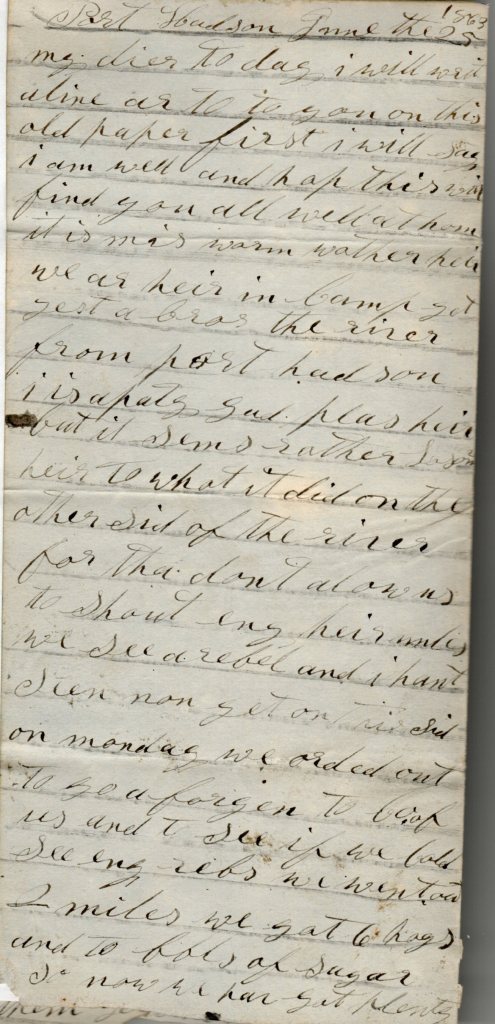 1863
Port Hudson June the 25
my dier to day i will writ
a line ar to to you on this
old paper first i will say
i am well and hop this will
find you all well at hom
it is mis worm wother heir
we ar heir in Camp yet
yest a cros the river
from port hudson
i is a paty gud plas heir
but it sems rather
heir to what it did on the
other sid of the river
for tha dont alow us
to shout eny heir unles
we see a rebel and i hant
seen non yet on this sid
on monday we orded out
to go a forgen to
us and to see if we Cold
see eny rebs we went out
2 miles we got 6 hogs
and to bbls of sugar
So now we hav got plenty
them